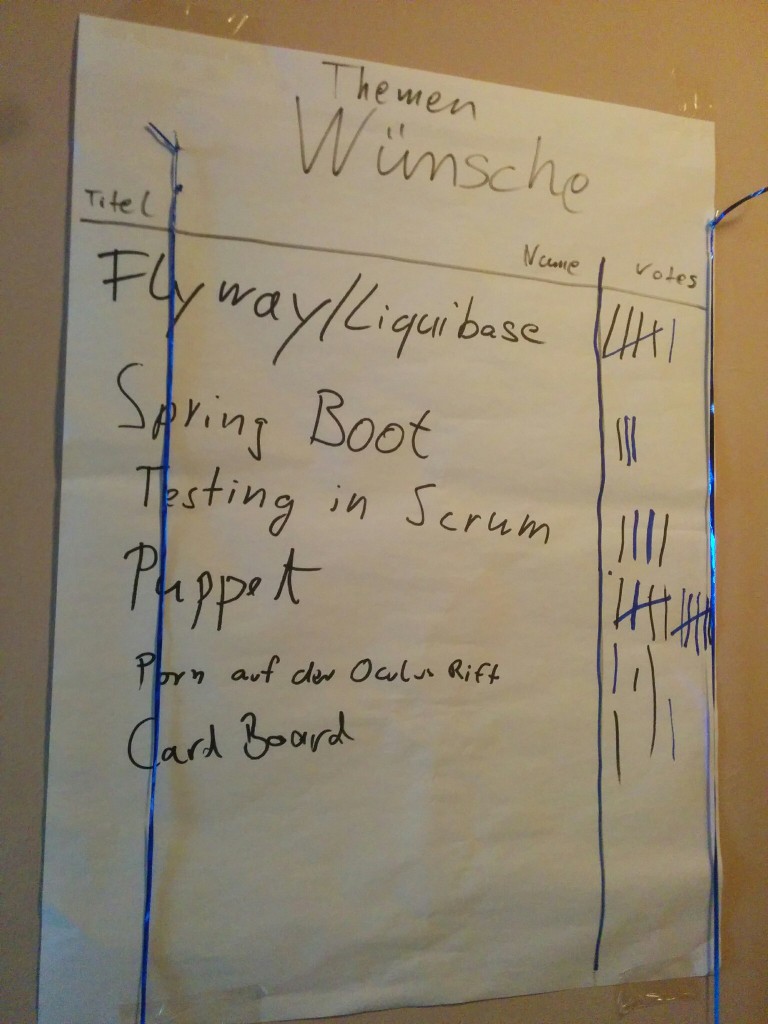 Themen
Wünsche
Titel Name Votes
Flyway/Liquibase
Spring Boot
Testing in Scrum
Puppet
Porn auf der Oculus Rift
Card Board